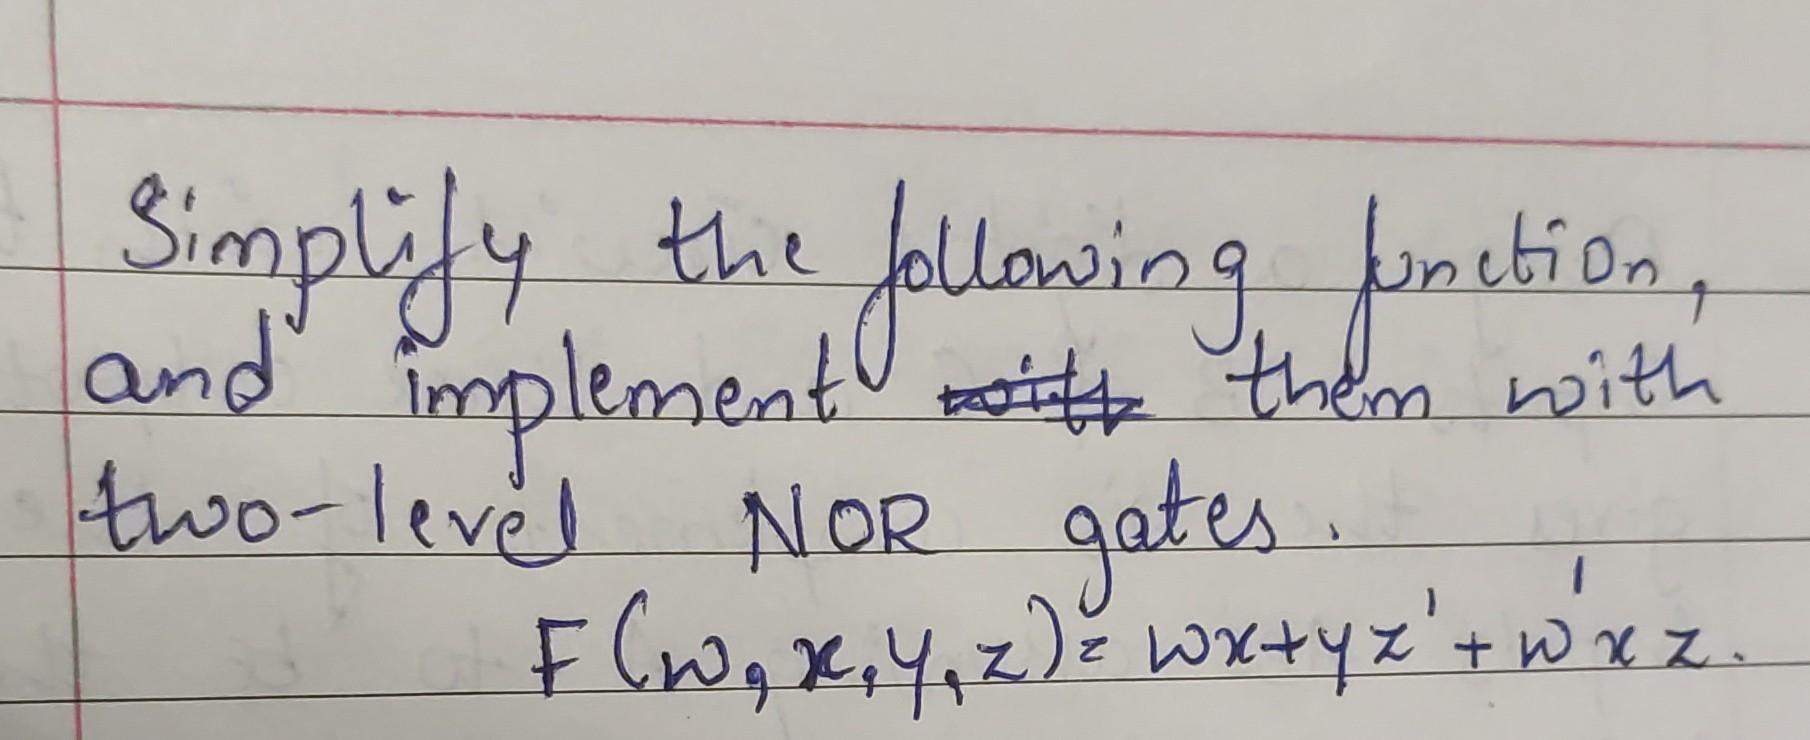 Simplify the following function,
and implement them with
two-level NOR gates.
F(w,x,y,z)=wx+yz'+w'xz.